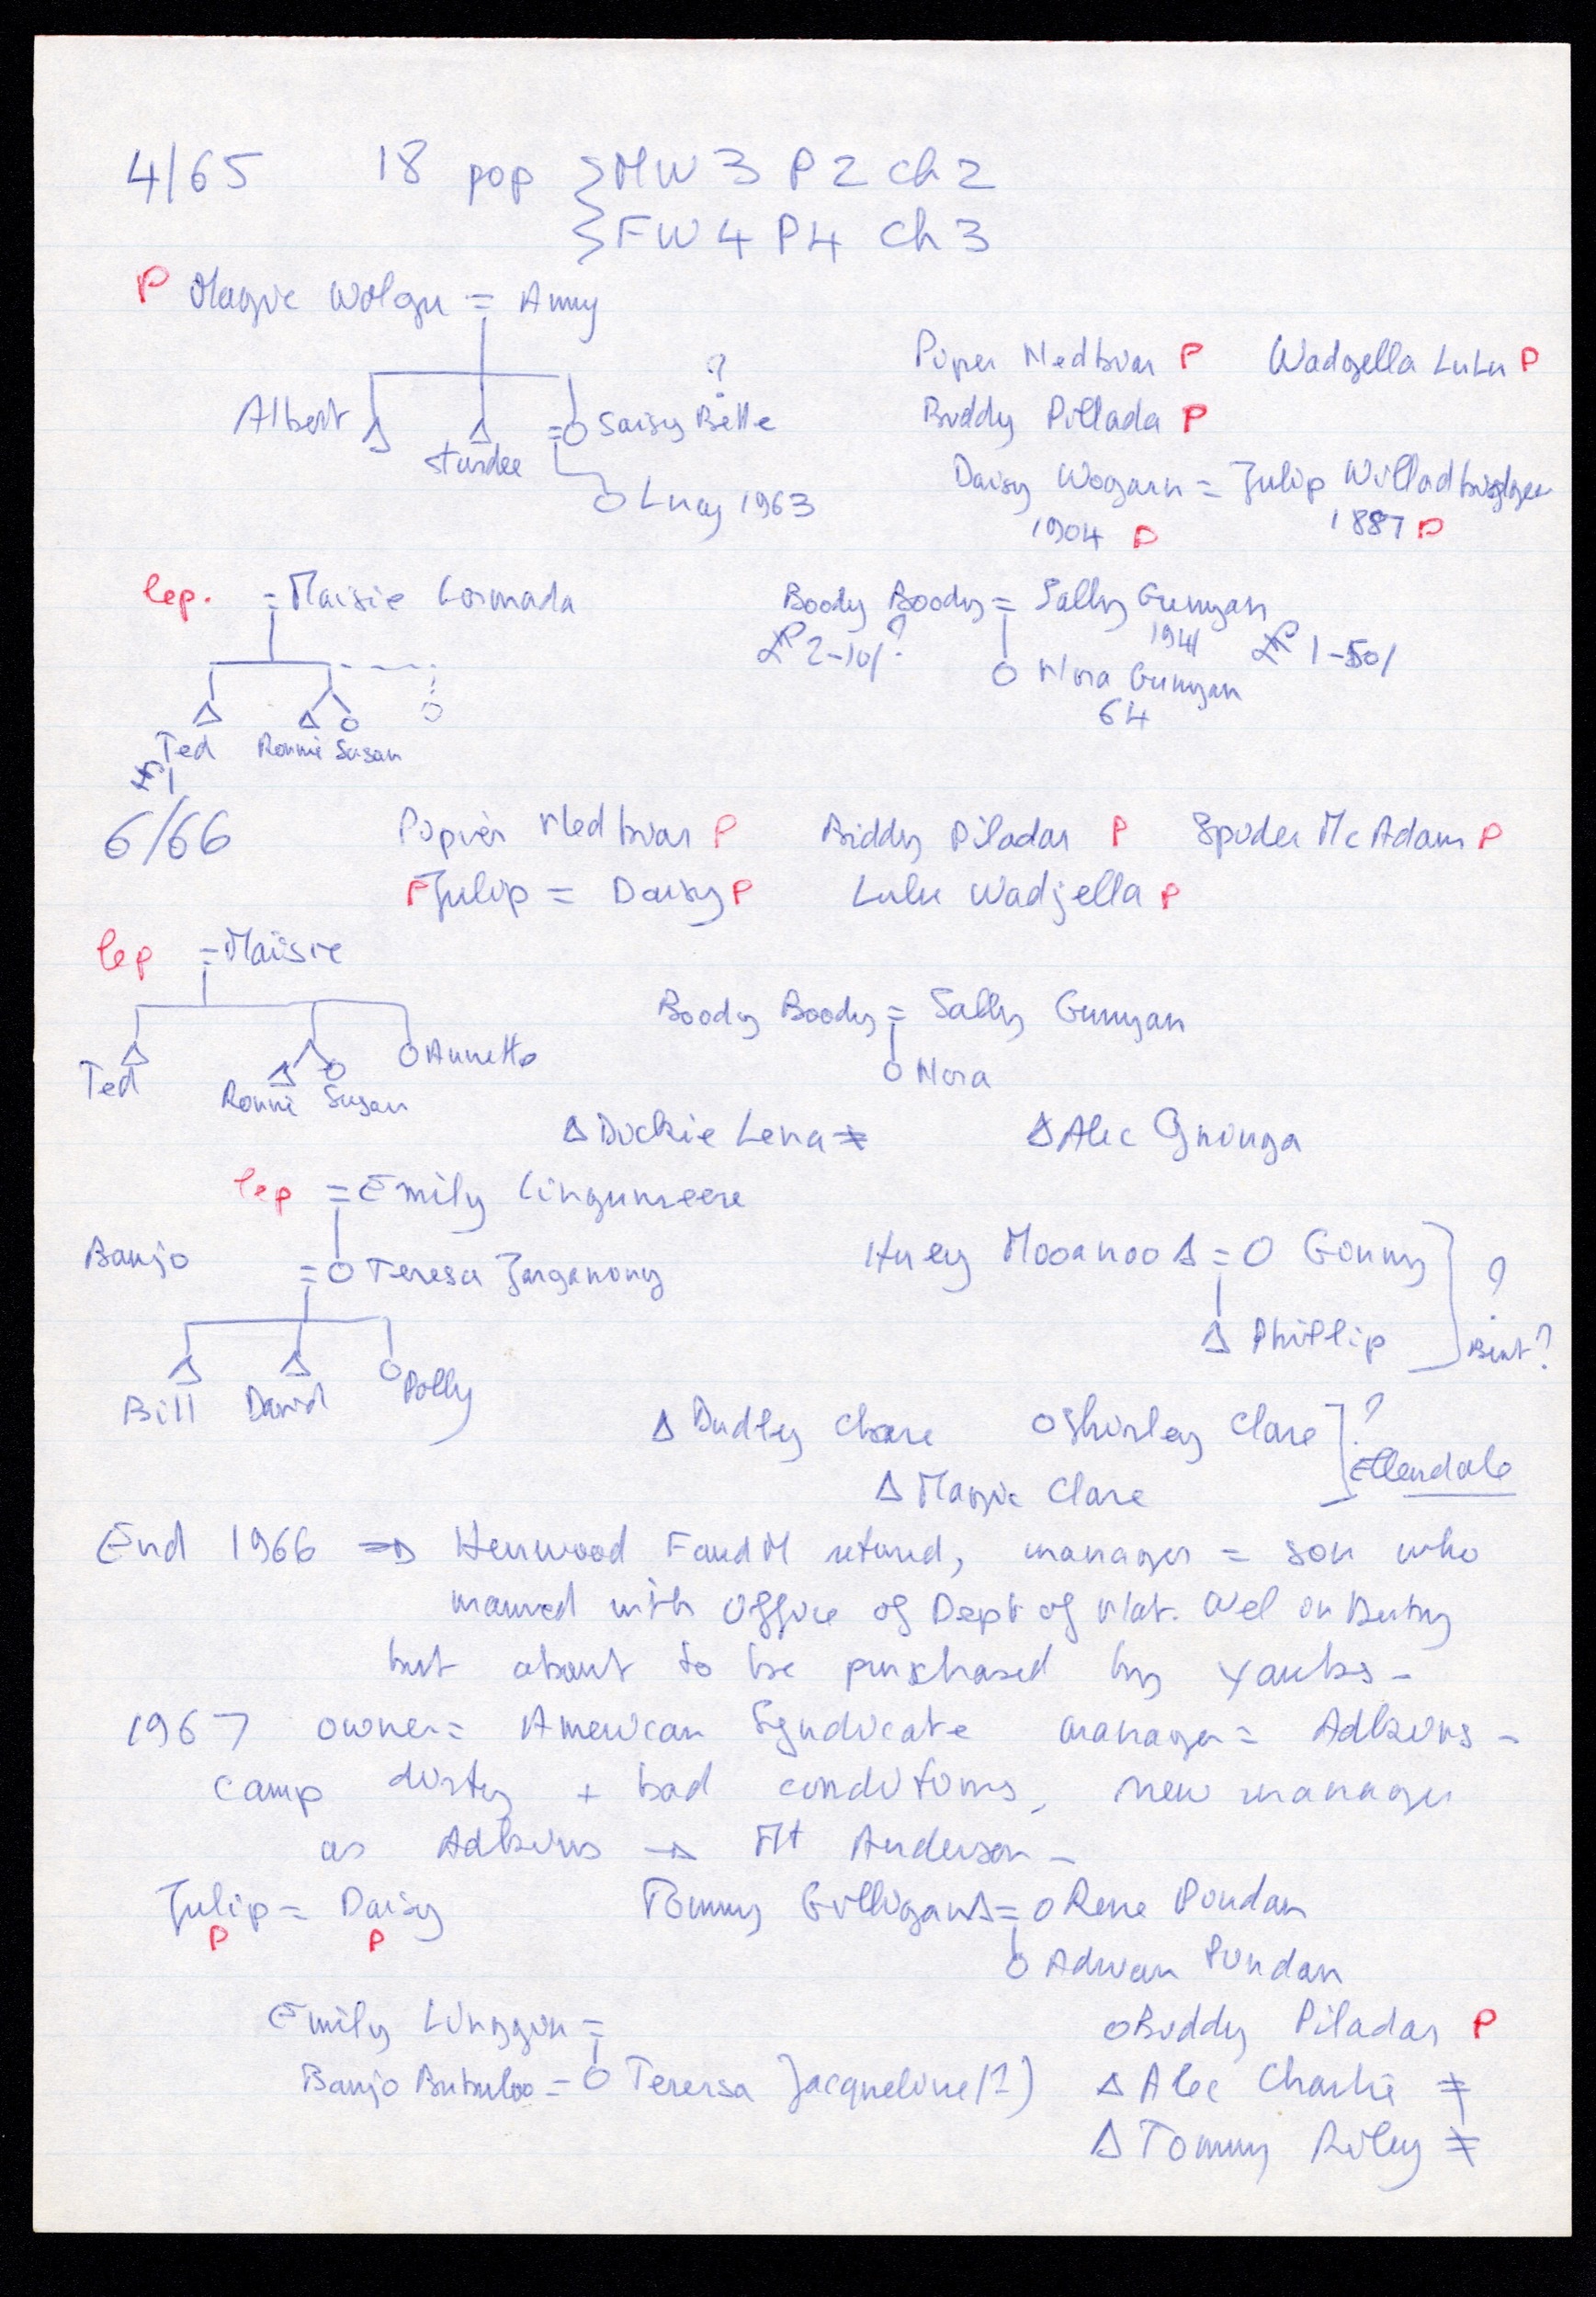 4/65 18 pop } MW 3 P 2 ch 2
} FW 4 P4 Ch 3
P Magic Wolgu = Amy
Piper Nedbiar P Wadgella LuLu P
?
Albert Δ Δ = O Saisy Belle
Biddy Pillada P
O Lucy 1963
Daisy Wogarn = Julip
1904 P 1887 P
lep. = Maisie Lormada
Boody Boody = Sally Gunyan
1941
2-10/? 1-50/
O Nora Gunyan
64
Δ Δ O O
Ted Ronnie Susan
6/66 Popier Nedbiar P Biddy Piladar P Spider McAdam P
P Julip = Daisy P Lulu Wadjella P
lep = Maisie
Boody Boody = Sally Gunyan
Δ Δ O O Annette
Ted Ronni Susan
O Nora
Δ Dickie Lena ≠ Δ Alec Gnonga
lep = Emily Lingumeere
Banjo = O Teresa Jarganony
Huey Mooanoo Δ = O Gonny ] ?
Δ Phillip
Δ Δ O
Bill David Polly
Δ Dudley Clare O Shirley Clare ] ?
Δ Magic Clare Ellendale
End 1966 ⇒ Henwood F and M retired, manager = son who
married with Office of Dept of Nat. Wel in Derby
but about to be purchased by Yanks -
1967 owner = American Syndicate manager = Adkins -
camp dirty + bad conditions, new manager
as Adkins → Mt Anderson -
Julip = Daisy Tommy Gilligan Δ = O Rene Pindan
P P
O Adrian Pindan
Emily Linggon =
O Biddy Piladar P
Banjo Bubuloo = O Terersa Jacqueline (?)
Δ Alec Charlie ≠
Δ Tommy Riley ≠